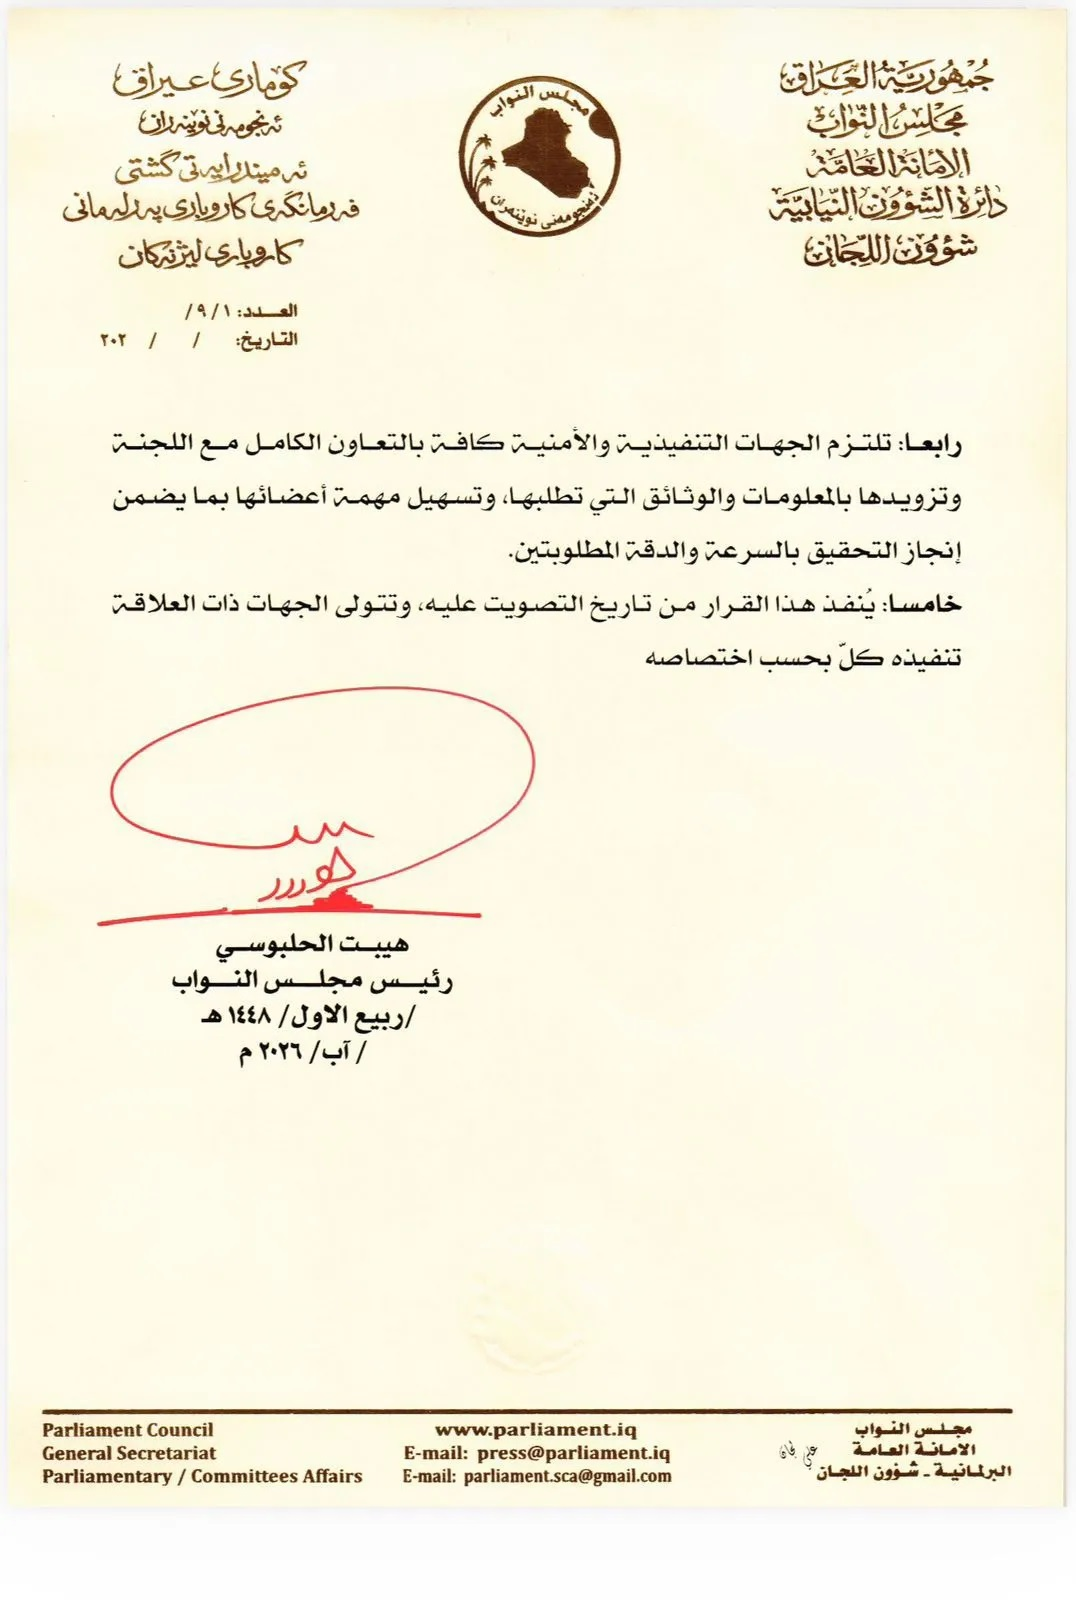 جمهورية العراق
مجلس النواب
الأمانة العامة
دائرة الشؤون النيابية
شؤون اللجان
مجلس النواب
ئەنجومەنی نوێنەران
كۆماری عیراق
ئەنجومەنی نوێنەران
ئەمیندارایەتی گشتی
فەرمانگەی كاروباری پەرلەمانی
كاروباری لیژنەكان
العدد: ١/ ٩/
التاريخ: / / ٢٠٢
رابعا: تلتزم الجهات التنفيذية والأمنية كافة بالتعاون الكامل مع اللجنة
وتزويدها بالمعلومات والوثائق التي تطلبها، وتسهيل مهمة أعضائها بما يضمن
إنجاز التحقيق بالسرعة والدقة المطلوبتين.
خامسا: يُنفذ هذا القرار من تاريخ التصويت عليه، وتتولى الجهات ذات العلاقة
تنفيذه كلّ بحسب اختصاصه
هيبت الحلبوسي
رئيس مجلس النواب
/ربيع الاول/ ١٤٤٨ هـ
/ آب/ ٢٠٢٦ م
مجلس النواب
الامانة العامة
البرلمانية - شؤون اللجان
www.parliament.iq
E-mail: press@parliament.iq
E-mail: parliament.sca@gmail.com
Parliament Council
General Secretariat
Parliamentary / Committees Affairs